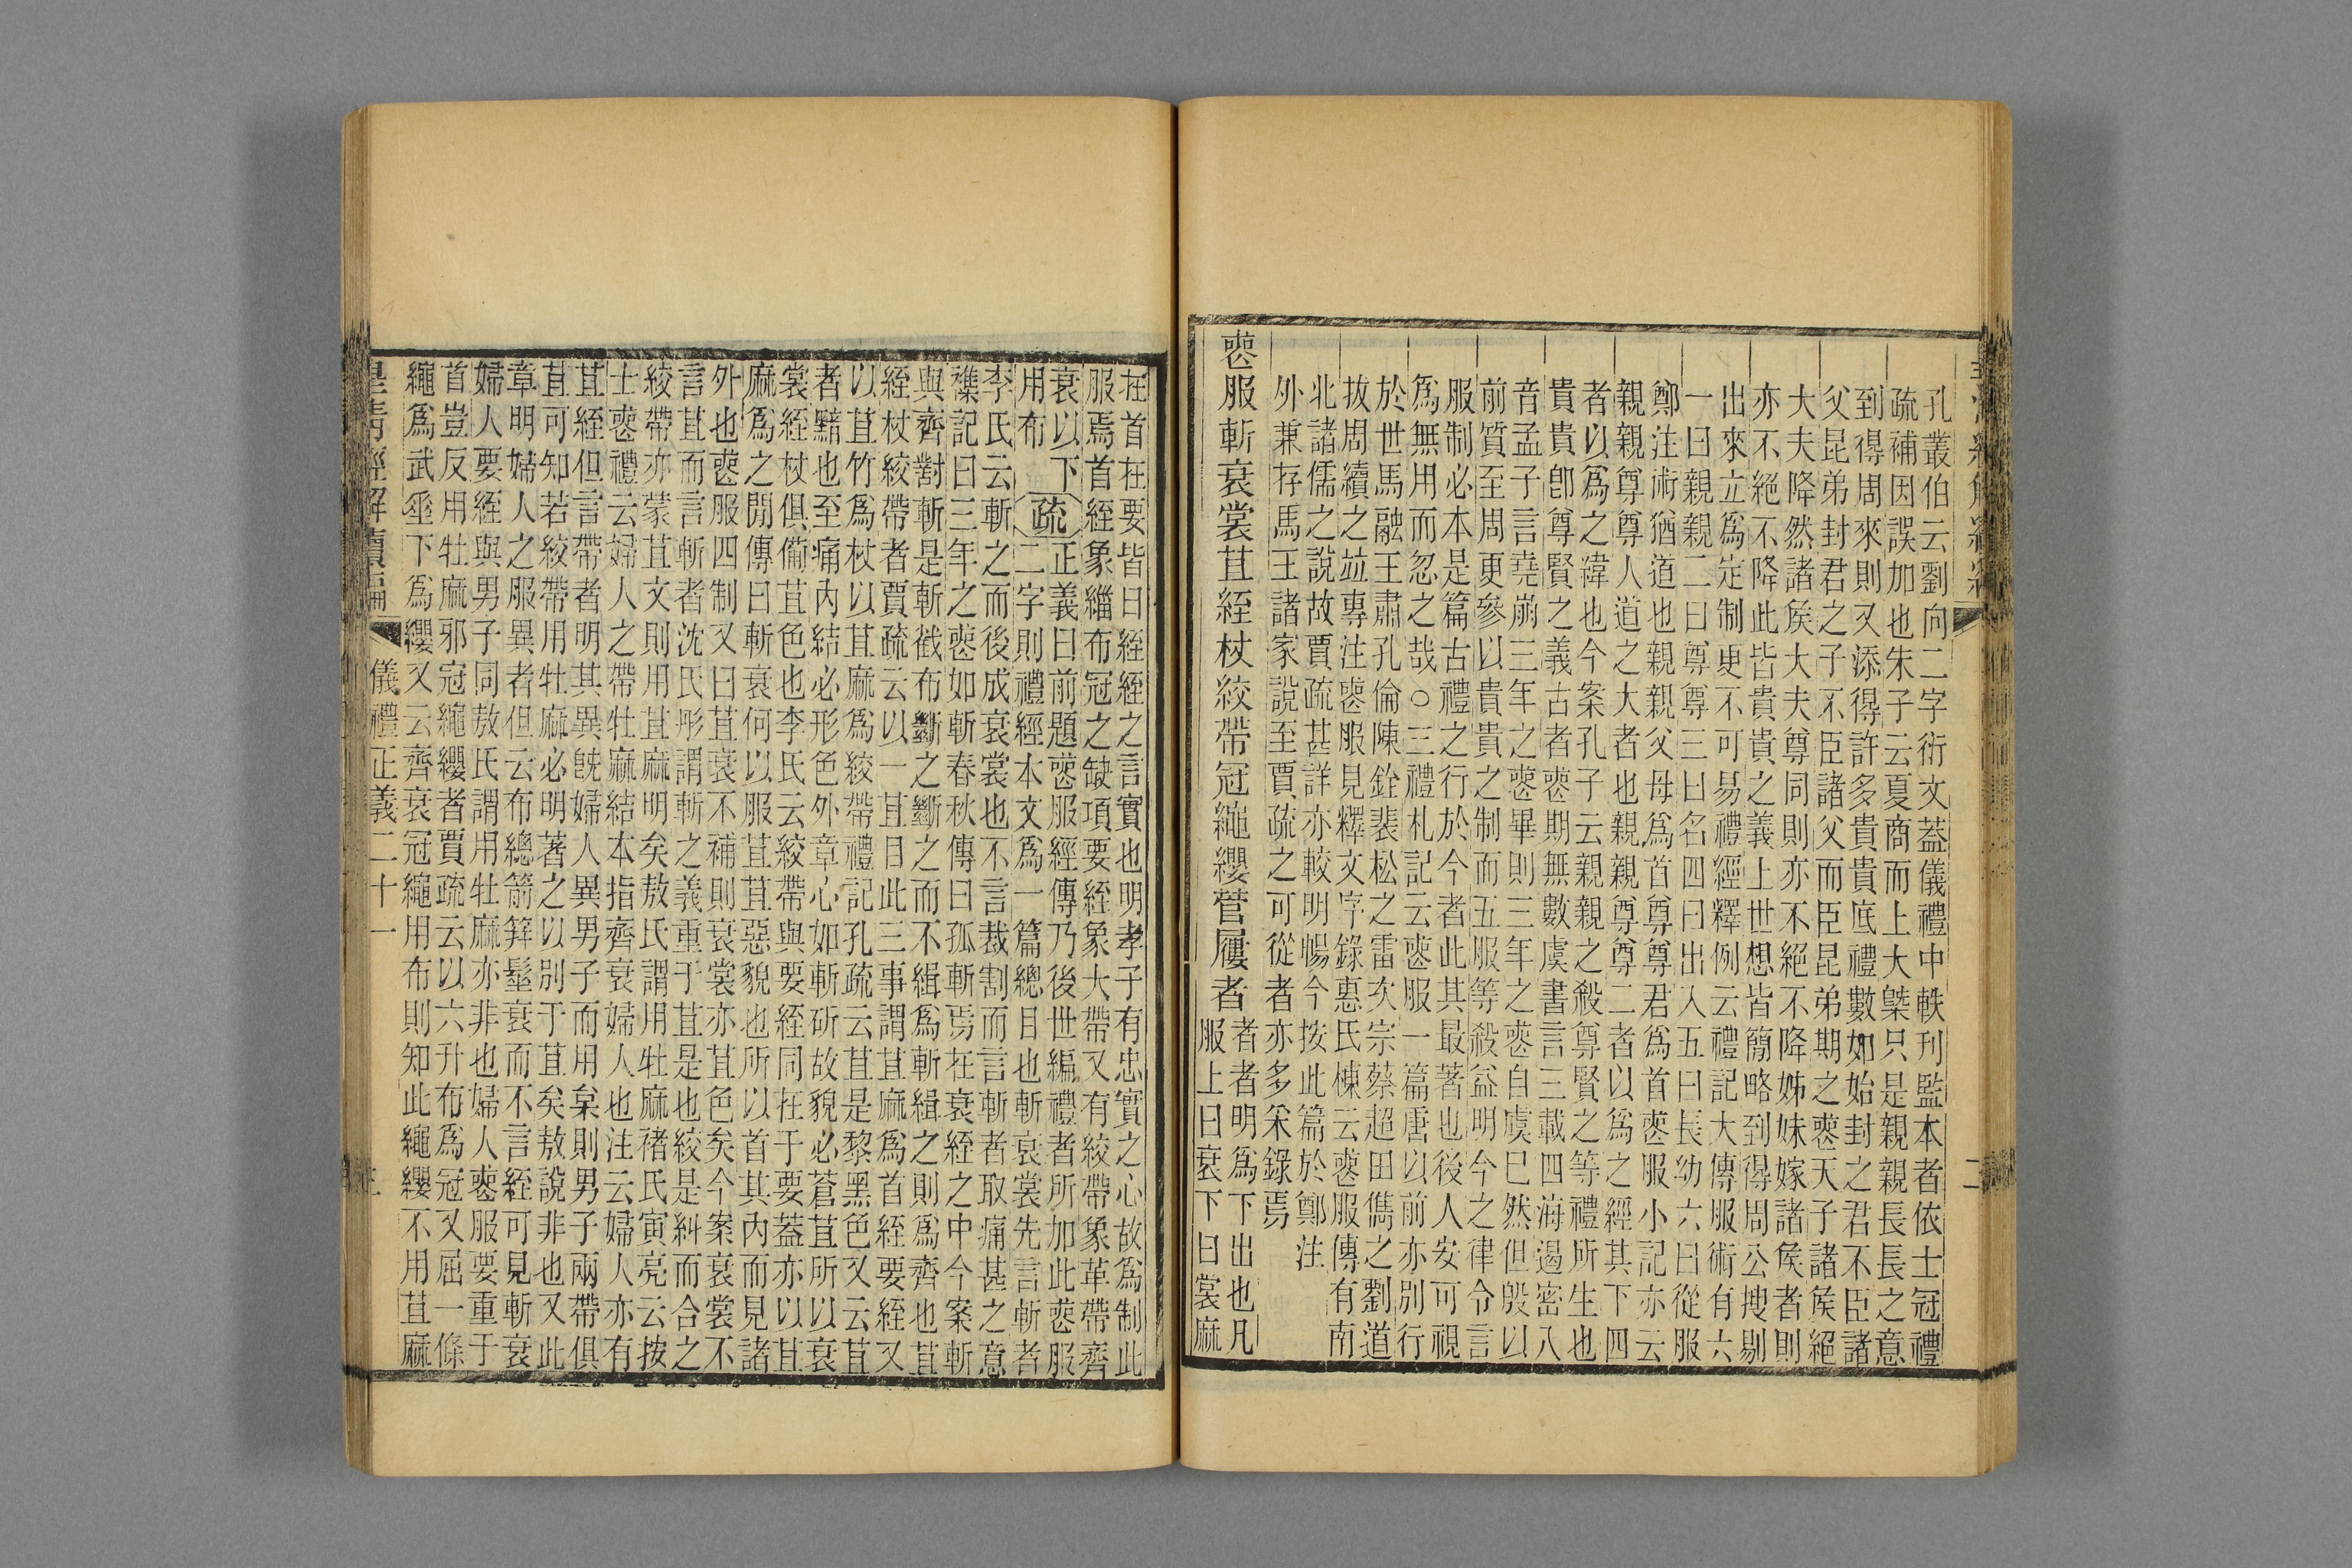 孔叢伯云劉向二字衍文葢儀禮中軼刊監本者依士冠禮
疏補因誤加也朱子云夏商而上大槩只是親親長長之意
到得周來則又添得許多貴貴底禮數如始封之君不臣諸
父昆弟封君之子不臣諸父而臣昆弟期之䘮天子諸矦絕
大夫降然諸矦大夫尊同則亦不絕不降姊妹嫁諸矦者則
亦不絕不降此皆貴貴之義上世想皆簡略到得周公搜剔
出來立爲定制更不可易禮經釋例云禮記大傳服術有六
一曰親親二曰尊尊三曰名四曰出入五曰長幼六曰從服
鄭注術猶道也親親父母爲首尊尊君爲首䘮服小記亦云
親親尊尊人道之大者也親親尊尊二者以爲之經其下四
者以爲之緯也今案孔子云親親之殺尊賢之等禮所生也
貴貴卽尊賢之義古者䘮期無數虞書言三載四海遏密八
音孟子言堯崩三年之䘮畢則三年之䘮自虞巳然但殷以
前質至周更參以貴貴之制而五服等殺益明今之律令言
服制必本是篇古禮之行於今者此其最著也後人安可視
爲無用而忽之哉○三禮札記云䘮服一篇唐以前亦別行
於世馬融王肅孔倫陳銓裴松之雷次宗蔡超田儁之劉道
拔周續之竝專注䘮服見釋文字錄惠氏棟云䘮服傳有南
北諸儒之說故賈疏甚詳亦較明暢今按此篇於鄭注
外兼存馬王諸家說至賈疏之可從者亦多采錄焉
䘮服斬衰裳苴絰杖絞帶冠繩纓菅屨者者者明爲下出也凡
服上曰衰下曰裳麻
在首在要皆曰絰絰之言實也明孝子有忠實之心故爲制此
服焉首絰象緇布冠之缺項要絰象大帶又有絞帶象革帶齊
衰以下
用布疏正義曰前題䘮服經傳乃後世編禮者所加此䘮服
二字則禮經本文爲一篇總目也斬衰裳先言斬者
李氏云斬之而後成衰裳也不言裁割而言斬者取痛甚之意
襍記曰三年之䘮如斬春秋傳曰孤斬焉在衰絰之中今案斬
與齊對斬是斬截布斷之斷之而不緝爲斬緝之則爲齊也苴
絰杖絞帶者賈疏云以一苴目此三事謂苴麻爲首絰要絰又
以苴竹爲杖以苴麻爲絞帶禮記孔疏云苴是黎黑色又云苴
者黯也至痛內結必形色外章心如斬斫故貌必蒼苴所以衰
裳絰杖俱備苴色也李氏云絞帶與要絰同在于要葢亦以苴
麻爲之閒傳曰斬衰何以服苴苴惡貌也所以首其內而見諸
外也䘮服四制又曰苴衰不補則衰裳亦苴色矣今案衰裳不
言苴而言斬者沈氏彤謂斬之義重于苴是也絞是糾而合之
絞帶亦蒙苴文則用苴麻明矣敖氏謂用牡麻褚氏寅亮云按
士䘮禮云婦人之帶牡麻結本指齊衰婦人也注云婦人亦有
苴絰但言帶者明其異旣婦人異男子而用枲則男子兩帶俱
苴可知若絞帶用牡麻必明著之以別于苴矣敖說非也又此
章明婦人之服異者但云布總箭筓髽衰而不言絰可見斬衰
婦人要絰與男子同敖氏謂用牡麻亦非也婦人䘮服要重于
首豈反用牡麻邪冠繩纓者賈疏云以六升布爲冠又屈一條
繩爲武垂下爲纓又云齊衰冠繩用布則知此繩纓不用苴麻
皇淸經解續編 儀禮正義二十一